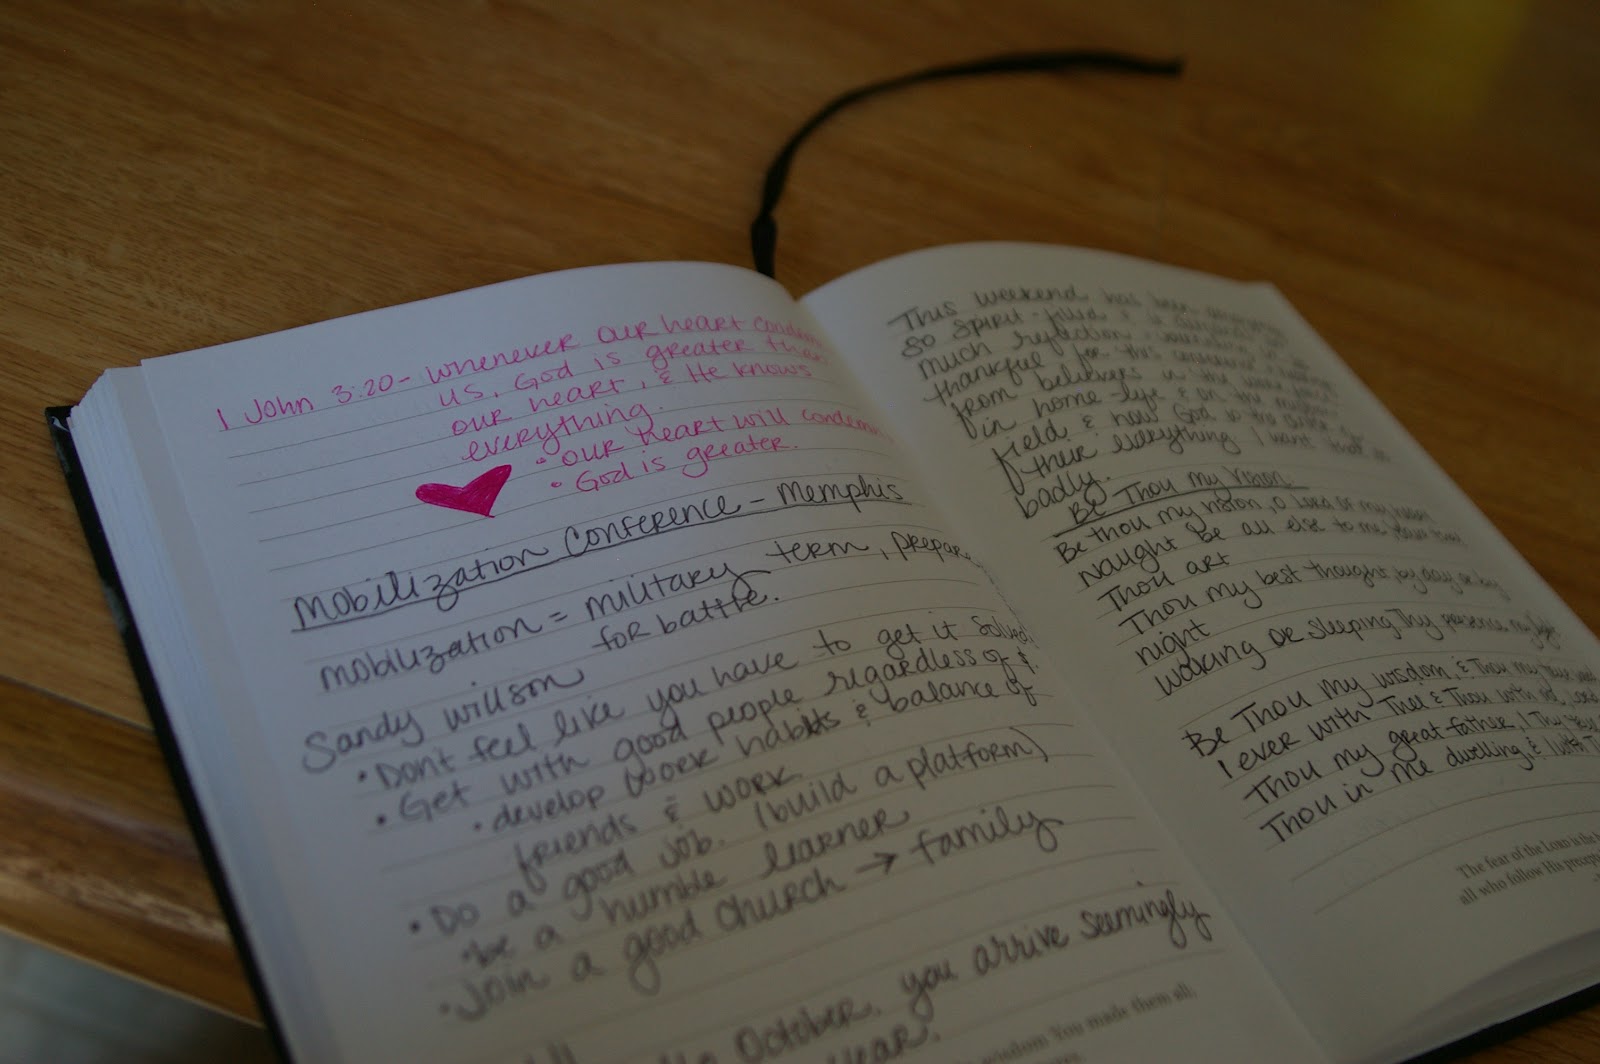 1 John 3:20 - whenever our heart condemns
us, God is greater than
our heart, & He knows
everything.
• our heart will condemn
• God is greater.
Mobilization Conference - Memphis
mobilization = military term, prepare
for battle.
Sandy Willson
• Don't feel like you have to get it solved
• Get with good people regardless of $.
• develop work habits & balance of
friends & work
• Do a good job. (build a platform)
• be a humble learner
• Join a good church → family
October, you arrive seemingly
wisdom You made them all,
This weekend has been
so SPIRIT-filled &
much reflection
thankful for this
from believers in the
in home-life & on the
field & how God is the
of their everything. I want that so
badly.
Be Thou my Vision
Be thou my vision, O Lord of my
Naught be all else to me,
Thou art
Thou my best thought, by day or by
night
waking or sleeping Thy presence my
Be Thou my wisdom, & Thou my true
I ever with Thee & Thou with me, Lord
Thou my great father, I Thy
Thou in me dwelling, & I with
The fear of the Lord is the
all who follow His